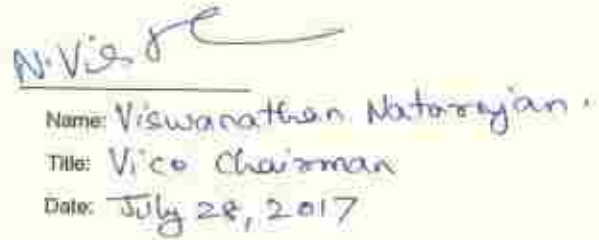 N. Vis
Name: Viswanathan Natarajan.
Title: Vice Chairman
Date: July 28, 2017